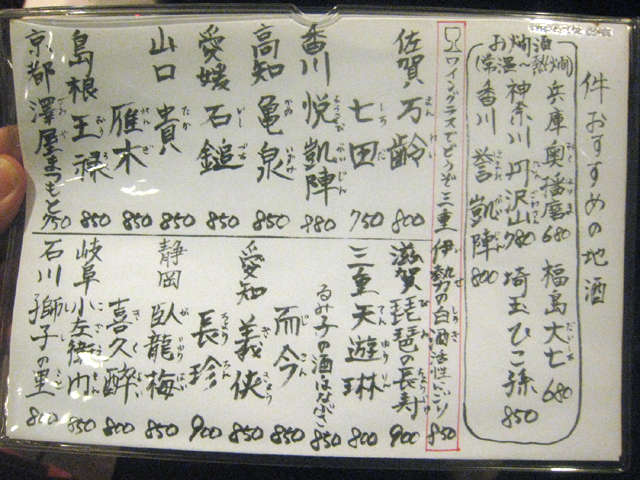 件おすすめの地酒
お燗酒
(常温～熱燗)
兵庫 奥播磨 680 福島 大七 680
神奈川 丹沢山 780 埼玉 ひこ孫 850
香川 誉 凱陣 800
ワイングラスでどうぞ 三重 伊勢の白酒 活性にごり 850
佐賀 万齢 800
七田 750
香川 悦凱陣 980
高知 亀泉 850
愛媛 石鎚 850
山口 貴 850
雁木 850
島根 王禄 850
京都 澤屋まつもと 750
滋賀 琵琶の長寿 900
三重 天遊琳 800
るみ子の酒 はなぶさ 850
而今 850
愛知 義侠 850
長珍 900
静岡 臥龍梅 850
喜久酔 800
岐阜 小左衛門 800
石川 獅子の里 800